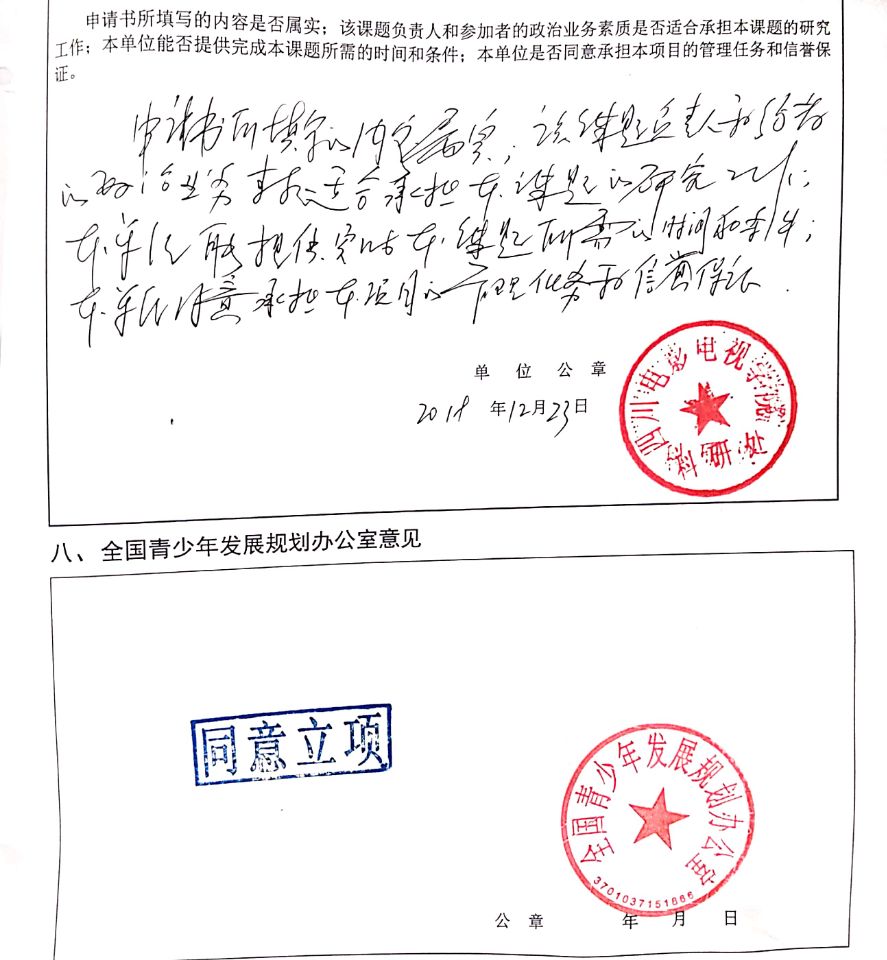 申请书所填写的内容是否属实；该课题负责人和参加者的政治业务素质是否适合承担本课题的研究
工作；本单位能否提供完成本课题所需的时间和条件；本单位是否同意承担本项目的管理任务和信誉保
证。
申请书所填写的内容属实；该课题负责人和参加者
的政治业务素质适合承担本课题的研究工作；
本单位能提供完成本课题所需的时间和条件；
本单位同意承担本项目的管理任务和信誉保证.
单位公章
2018年12月23日
四川电影电视学院
科研处
八、全国青少年发展规划办公室意见
同意立项
全国青少年发展规划办公室
3701037151866
公章 年 月 日